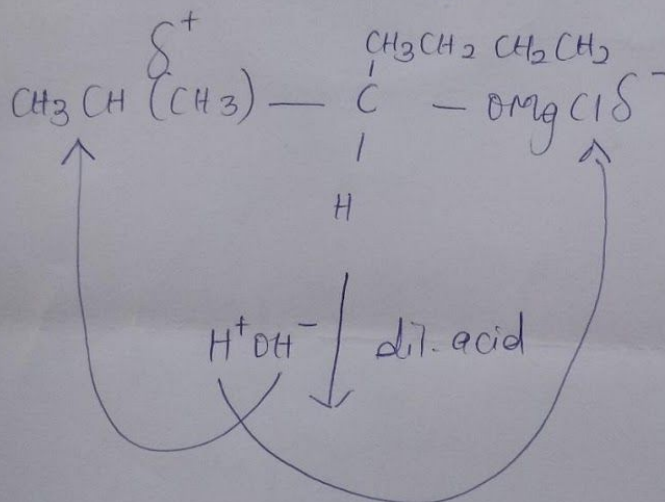 δ+
CH3CH2 CH2CH2
CH3CH (CH3) — C — OMgClδ-
H
H+OH- dil. acid